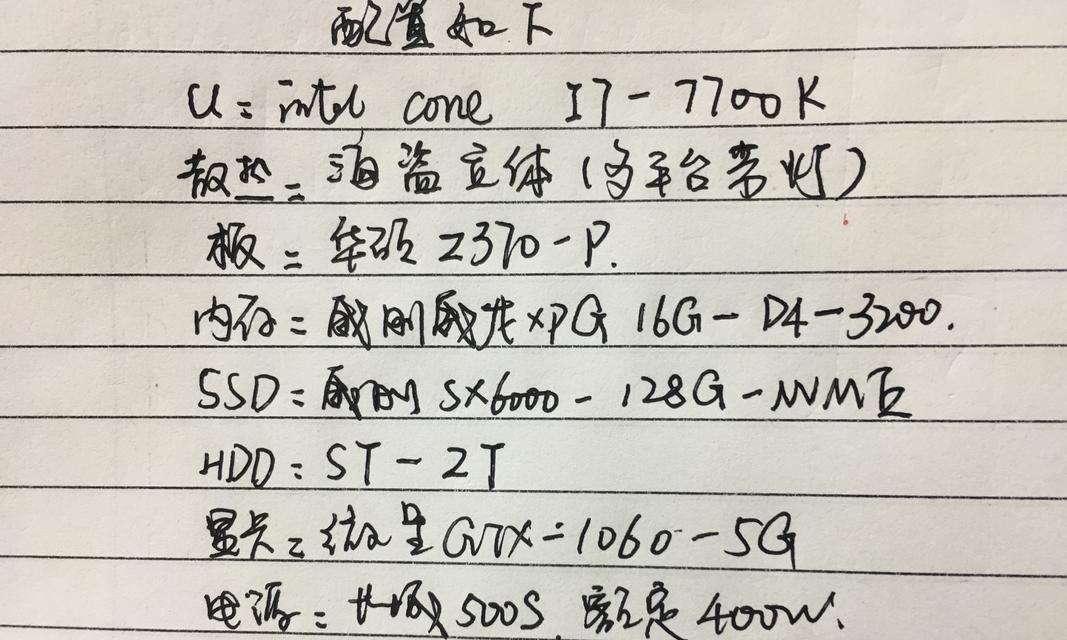 配置如下
U = intel core I7-7700K
散热 = 海盗立体(多平台带灯)
板 = 华硕 Z370-P.
内存 = 威刚威龙XPG 16G-D4-3200.
SSD = 威刚 SX6000-128G-NVME
HDD = ST-2T
显卡 = 微星 GTX-1060-5G
电源 = 长城500S 额定400W.